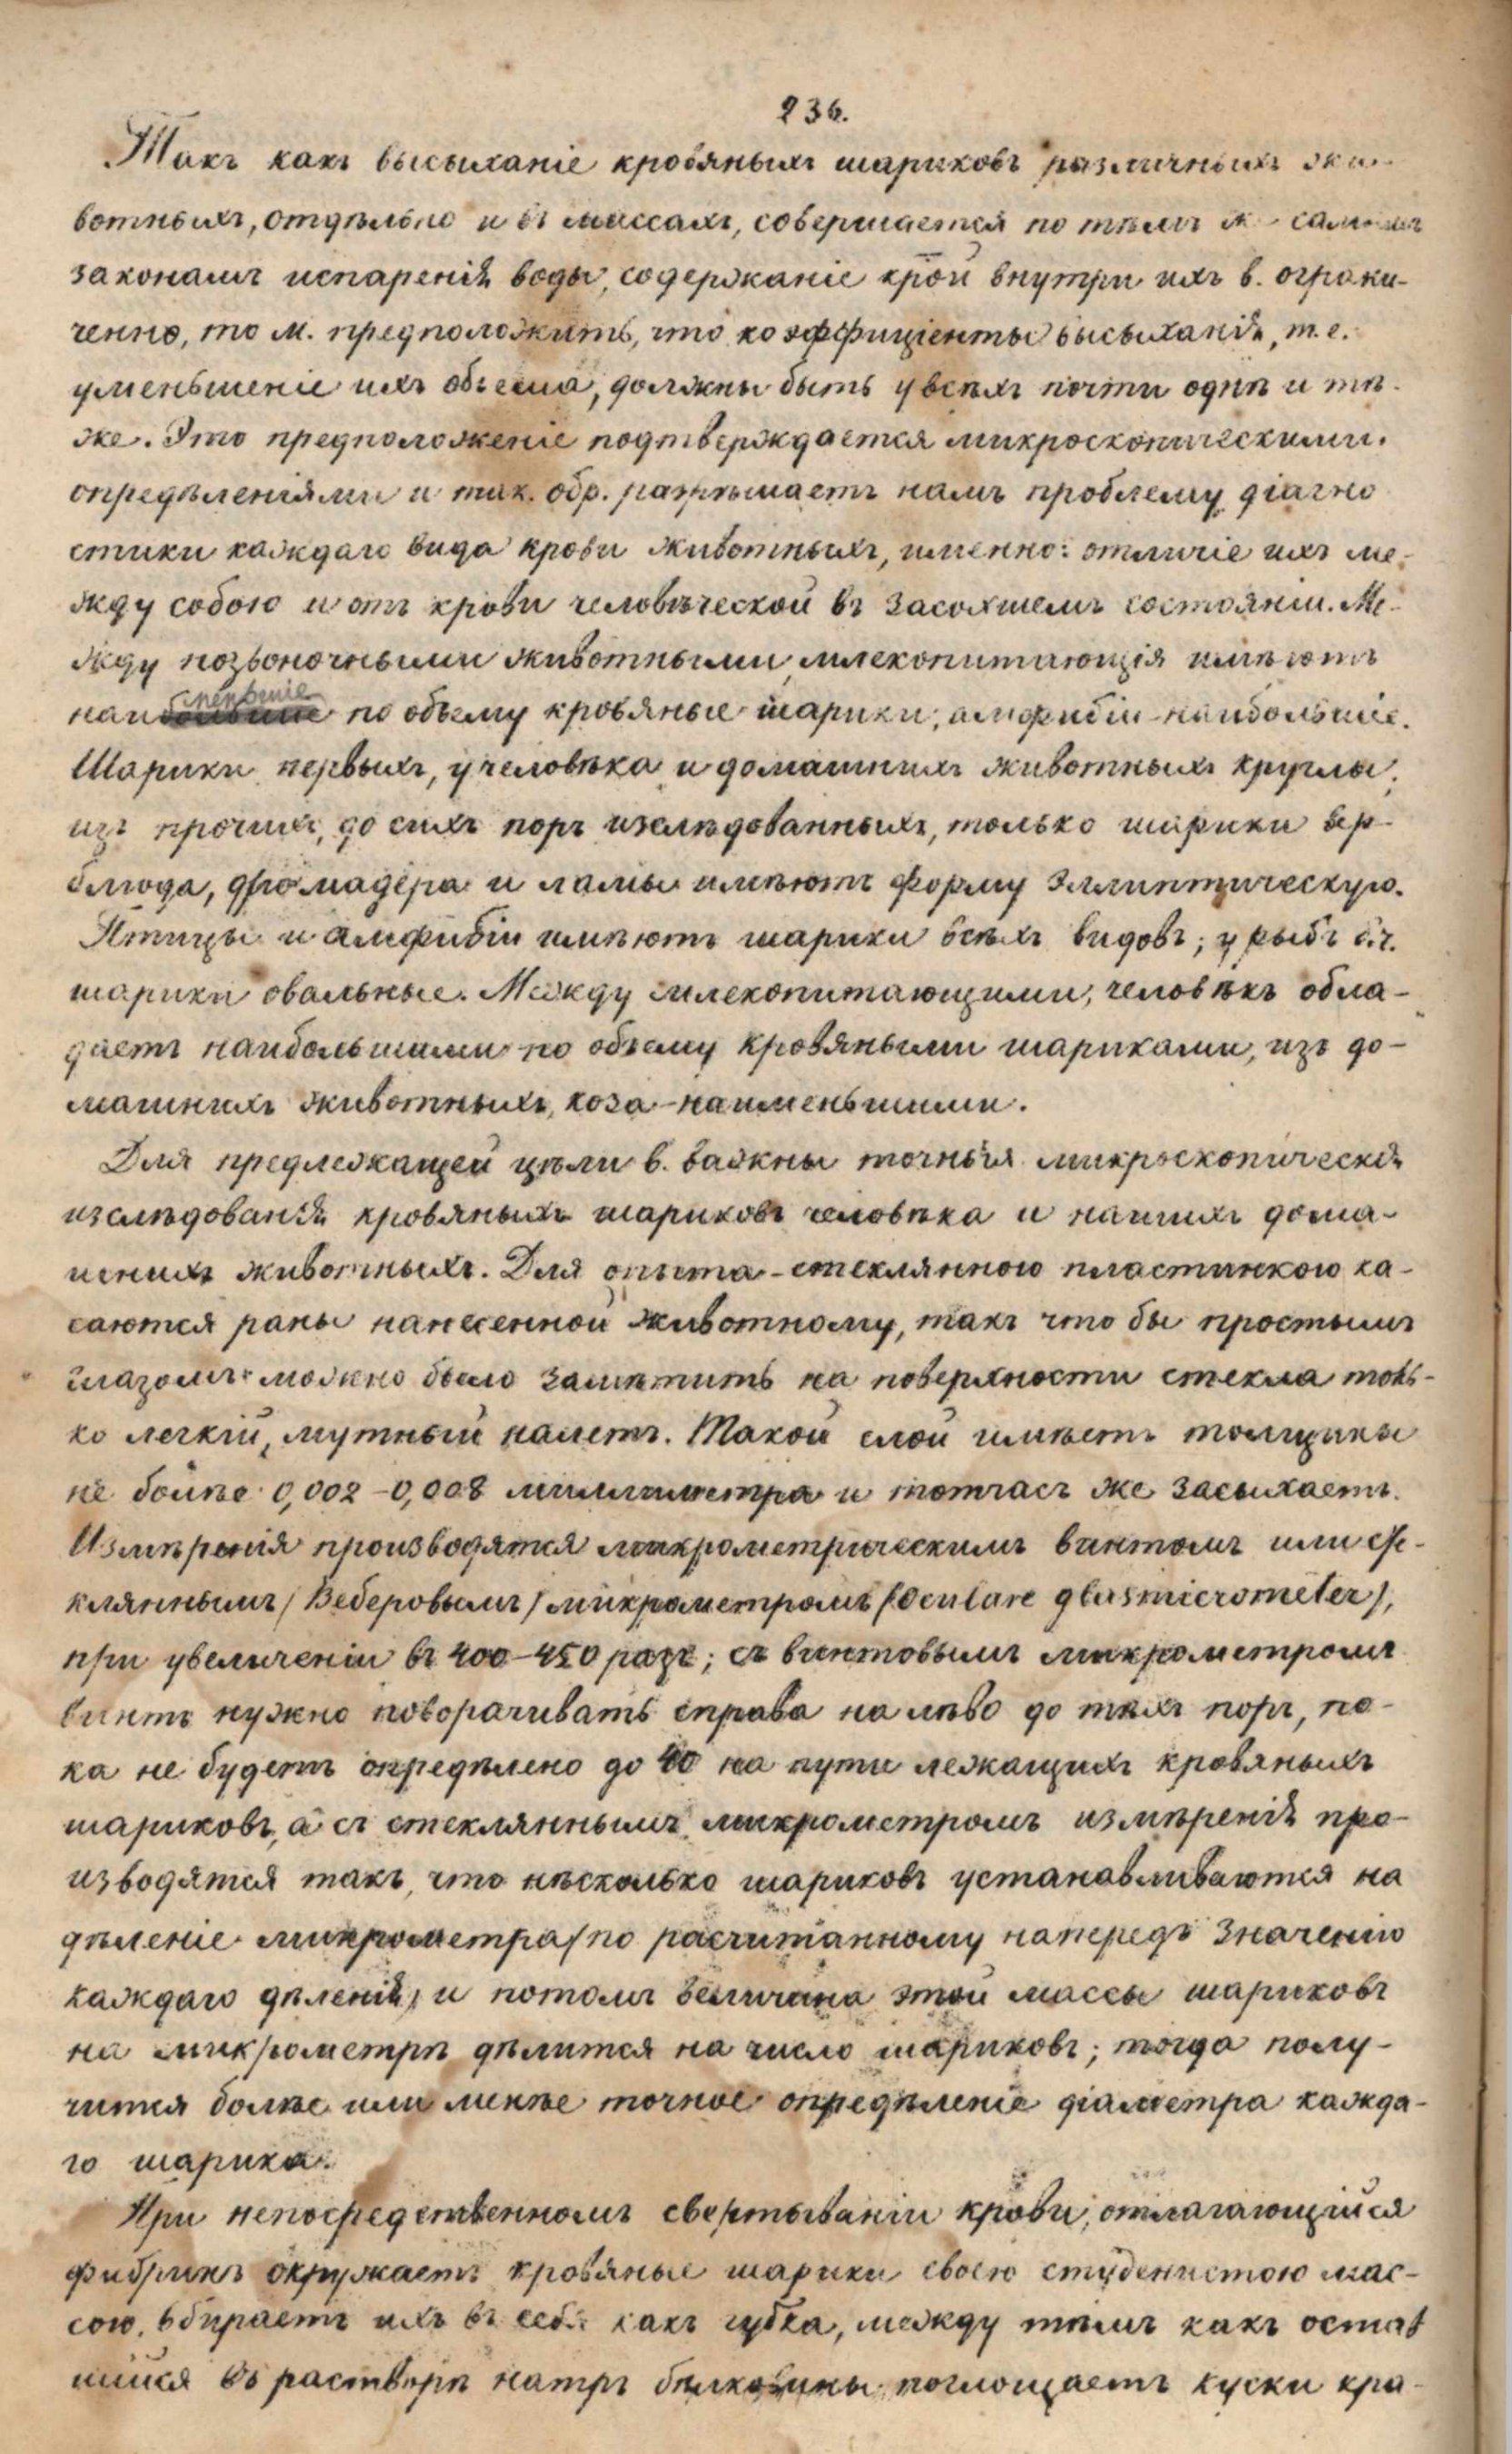 236.
Такъ какъ высыханіе кровяныхъ шариковъ различныхъ жи-
вотныхъ, отдѣльно и въ массахъ, совершается по тѣмъ же самымъ
законамъ испаренія воды, содержаніе крой внутри ихъ в. ограни-
ченно, то м. предположить, что коэффиціенты высыханія, т. е.
уменьшеніе ихъ объема, должны быть у всѣхъ почти однѣ и тѣ-
же. Это предположеніе подтверждается микроскопическими
опредѣленіями и так. обр. разрѣшаетъ намъ проблему діагно
стики каждаго вида крови животныхъ, именно: отличіе ихъ ме-
жду собою и отъ крови человѣческой въ засохшемъ состояніи. Ме-
жду позвоночными животными, млекопитающія имѣютъ
наименьшіе по объему кровяные шарики, амфибіи - наибольшіе.
Шарики первыхъ, у человѣка и домашнихъ животныхъ круглы;
изъ прочихъ, до сихъ поръ изслѣдованныхъ, только шарики вер-
блюда, дромадера и ламы имѣютъ форму эллиптическую.
Птицы и амфибіи имѣютъ шарики всѣхъ видовъ; у рыбъ б. ч.
шарики овальные. Между млекопитающими, человѣкъ обла-
даетъ наибольшими по объему кровяными шариками, изъ до-
машнихъ животныхъ, коза - наименьшими.
Для предлежащей цѣли в. важны точныя микроскопическія
изслѣдованія кровяныхъ шариковъ человѣка и нашихъ дома-
шнихъ животныхъ. Для опыта - стеклянною пластинкою ка-
саются раны нанесенной животному, такъ что бы простымъ
глазомъ можно было замѣтить на поверхности стекла толь-
ко легкій, мутный налетъ. Такой слой имѣетъ толщины
не болѣе 0,002 - 0,008 миллиметра и тотчасъ же засыхаетъ.
Измѣренія производятся микрометрическимъ винтомъ или сте-
кляннымъ (Веберовымъ) микрометромъ (Oculare glasmicrometer),
при увеличеніи въ 400 - 450 разъ; съ винтовымъ микрометромъ
винтъ нужно поворачивать справа на лѣво до тѣхъ поръ, по-
ка не будетъ опредѣлено до 40 на пути лежащихъ кровяныхъ
шариковъ, а съ стекляннымъ микрометромъ измѣренія про-
изводятся такъ, что нѣсколько шариковъ устанавливаются на
дѣленіе микрометра (по расчитанному напередъ значенію
каждаго дѣленія) и потомъ величина этой массы шариковъ
на микрометрѣ дѣлится на число шариковъ; тогда полу-
чится болѣе или менѣе точное опредѣленіе діаметра каждa-
го шарика.
При непосредственномъ свертываніи крови, отлагающійся
фибринъ окружаетъ кровяные шарики своею студенистою мас-
сою, вбираетъ ихъ въ себя какъ губка, между тѣмъ какъ остав
шійся въ растворѣ натръ бѣлковины поглощаетъ куски кра-